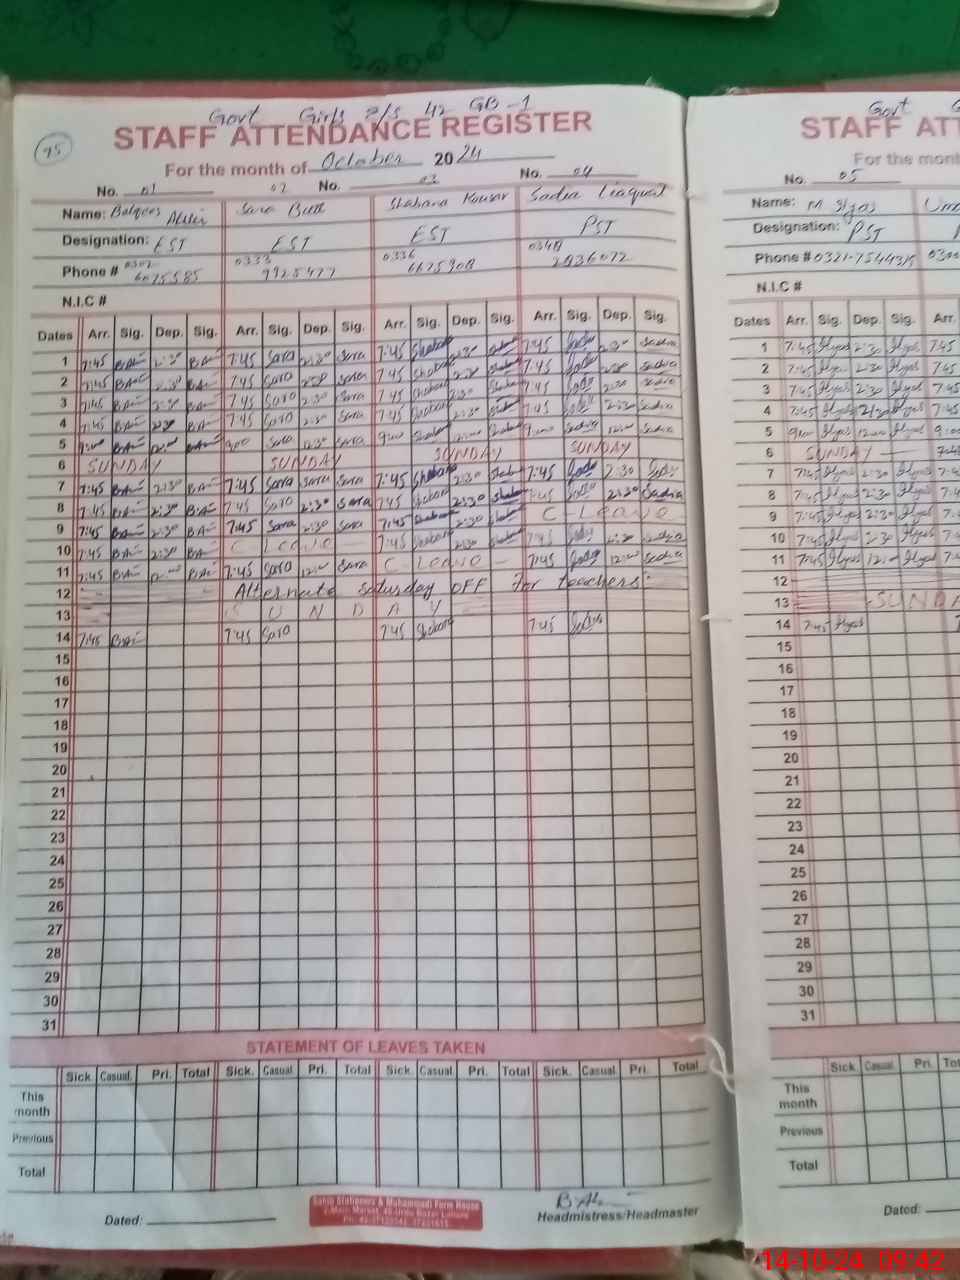 Govt Girls P/S 42 GB-1
STAFF ATTENDANCE REGISTER
95
For the month of October 2024
No. 01 02 No. 03 No. 04
Name: Balqees Sara Butt Shabana Kousar Sadia Liaquat
Designation: EST EST EST PST
Phone # 0302 6075585 0333 9925477 0336 6675908 0348 2936072
N.I.C #
Dates Arr. Sig. Dep. Sig. Arr. Sig. Dep. Sig. Arr. Sig. Dep. Sig. Arr. Sig. Dep. Sig.
1 7:45 2:30 7:45 Sara 2:30 Sara 7:45 Shabana 2:30 7:45 Sadia 2:30 Sadia
2 7:45 2:30 7:45 Sara 2:30 Sara 7:45 Shabana 2:30 7:45 2:30 Sadia
3 7:45 2:30 7:45 Sara 2:30 Sara 7:45 Shabana 2:30 7:45 2:30 Sadia
4 7:45 2:30 7:45 Sara 2:30 Sara 7:45 Shabana 2:30 7:45 2:30 Sadia
5 9:00 12:00 9:00 Sara 12:30 Sara 9:00 12:00 9:00 Sadia 12:00 Sadia
6 SUNDAY SUNDAY SUNDAY SUNDAY
7 7:45 2:30 7:45 Sara Sara Sara 7:45 Shabana 2:30 7:45 2:30
8 7:45 2:30 7:45 Sara 2:30 Sara 7:45 Shabana 2:30 7:45 2:30 Sadia
9 7:45 2:30 7:45 Sara 2:30 Sara 7:45 Shabana 2:30 C-Leave
10 7:45 2:30 C Leave 7:45 Shabana 2:30 7:45 2:30 Sadia
11 7:45 12:00 7:45 Sara 12:00 Sara C-Leave - 7:45 12:00 Sadia
12 Alternate saturday OFF for teachers.
13 SUNDAY
14 7:45 7:45 Sara 7:45 Shabana 7:45
15
16
17
18
19
20
21
22
23
24
25
26
27
28
29
30
31
STATEMENT OF LEAVES TAKEN
Sick. Casual. Pri. Total Sick. Casual. Pri. Total Sick. Casual. Pri. Total Sick. Casual. Pri. Total
This month
Previous
Total
Dated:
Headmistress/Headmaster
Govt
STAFF ATT
For the mont
No. 05
Name: M Ilyas
Designation: PST
Phone # 0321-7544315 0300
N.I.C #
Dates Arr. Sig. Dep. Sig. Arr.
1 7:45 Ilyas 2:30 Ilyas 7:45
2 7:45 Ilyas 2:30 Ilyas 7:45
3 7:45 Ilyas 2:30 Ilyas 7:45
4 7:45 Ilyas 2:30 Ilyas 7:45
5 9:00 Ilyas 12:00 Ilyas 9:00
6 SUNDAY
7 7:45 Ilyas 2:30 Ilyas
8 7:45 Ilyas 2:30 Ilyas
9 7:45 Ilyas 2:30 Ilyas
10 7:45 Ilyas 2:30 Ilyas
11 7:45 Ilyas 12:00 Ilyas
12
13 SUNDA
14 7:45 Ilyas
15
16
17
18
19
20
21
22
23
24
25
26
27
28
29
30
31
Sick. Casual. Pri. Tot
This month
Previous
Total
Dated:
14-10-24 09:42